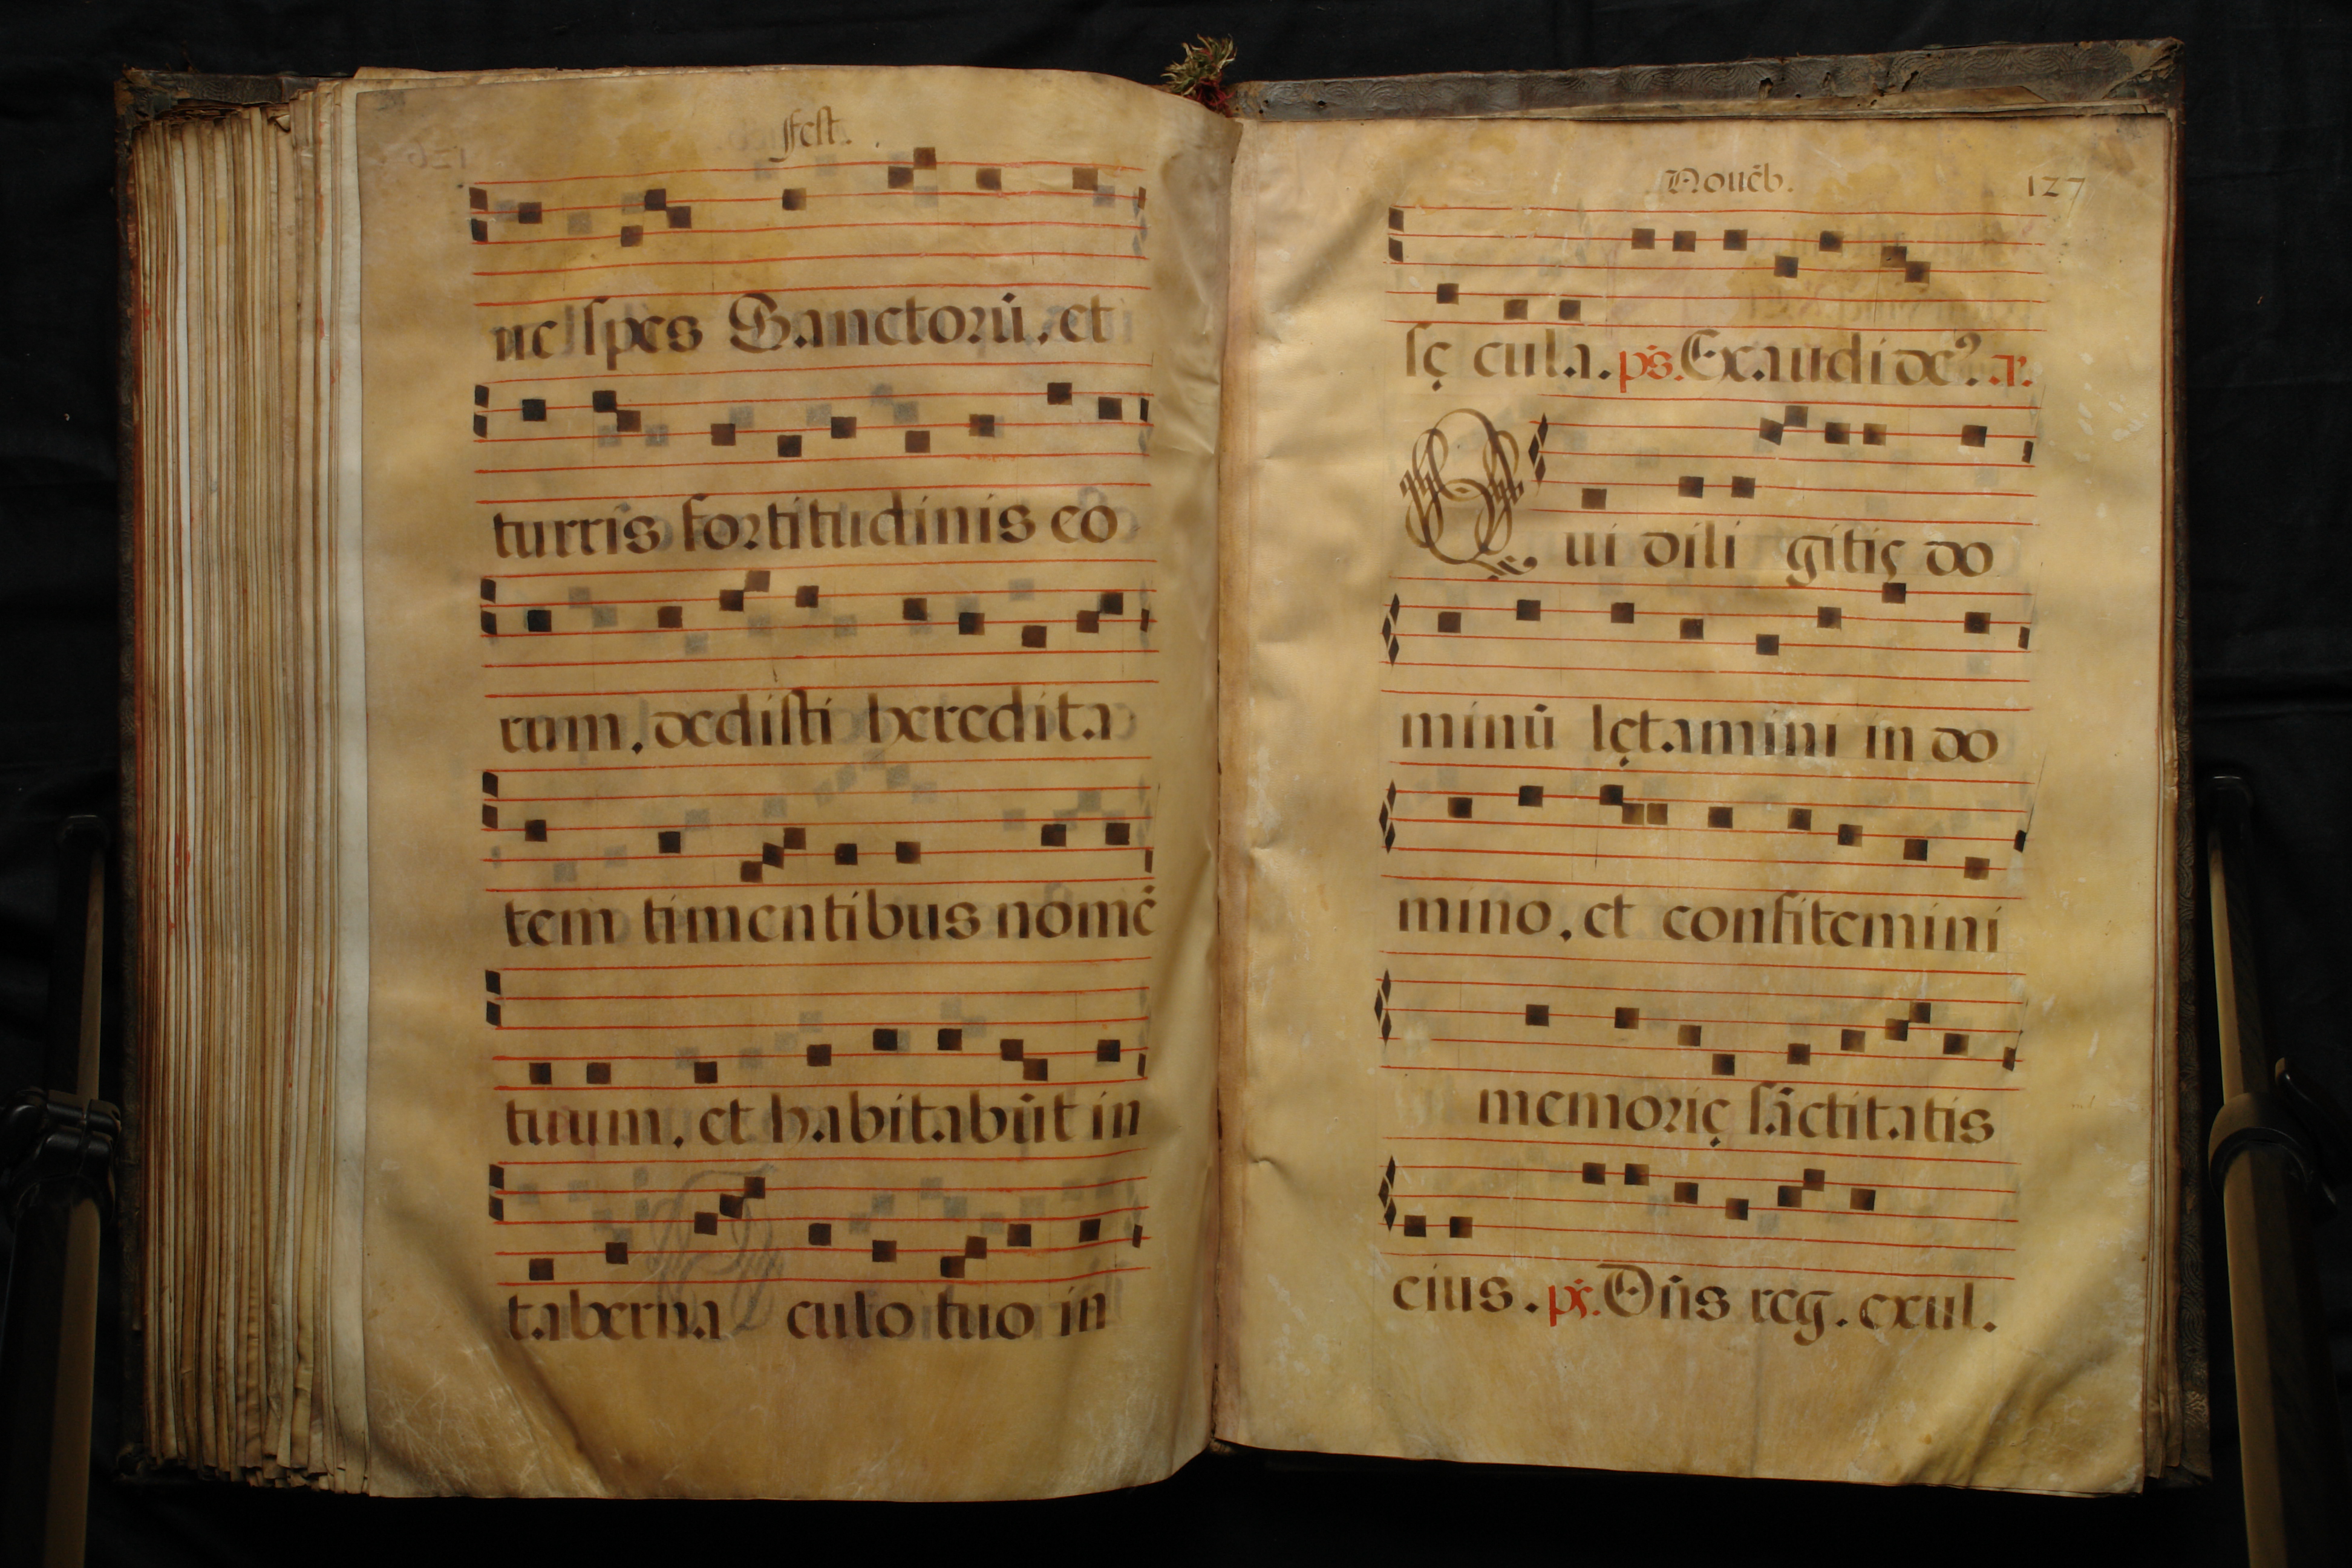 fest.
ne spes Sanctorū. et
turris fortitudinis eō
rum. dedisti heredita
tem timentibus nōmē
tuum. et habitabūt in
taberna culo tuo in
Nouēb. 127
sę cula. ps. Exaudi de⁹. a.
Qui dili gitis do
minū lętamini in do
mino. et confitemini
memorię sāctitatis
eius. ps. Dn̄s reg. exul.